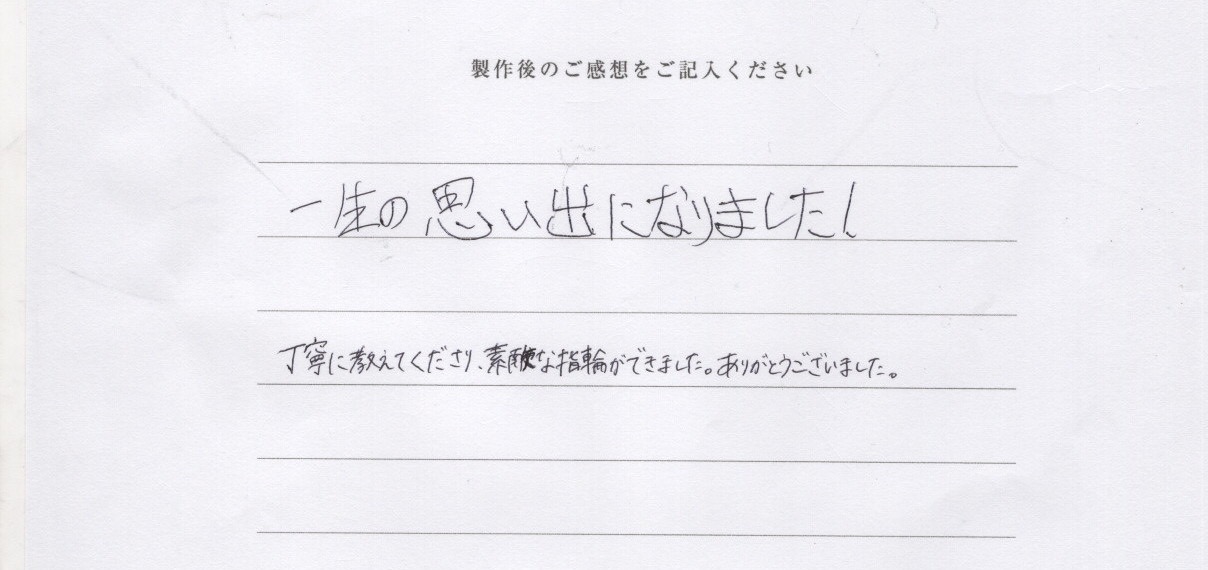 製作後のご感想をご記入ください
一生の思い出になりました!
丁寧に教えてくださり、素敵な指輪ができました。ありがとうございました。